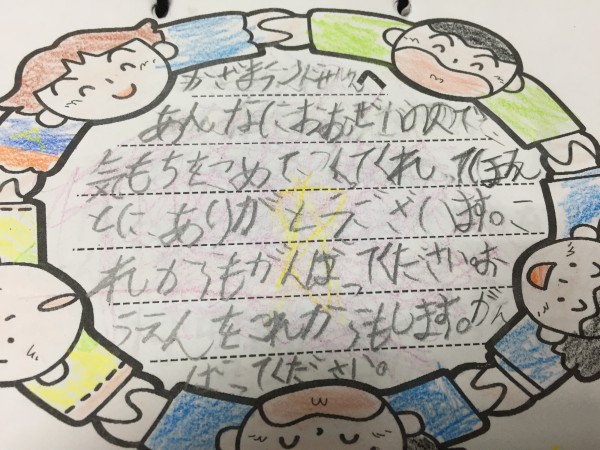 かざまランドせリんへ
あんなにおおぜいの人で、
気もちをこめてつくてくれってほん
とに、ありがとうございます。こ
れからもがんばってください。お
うえんをこれからもします。がん
ばってください。